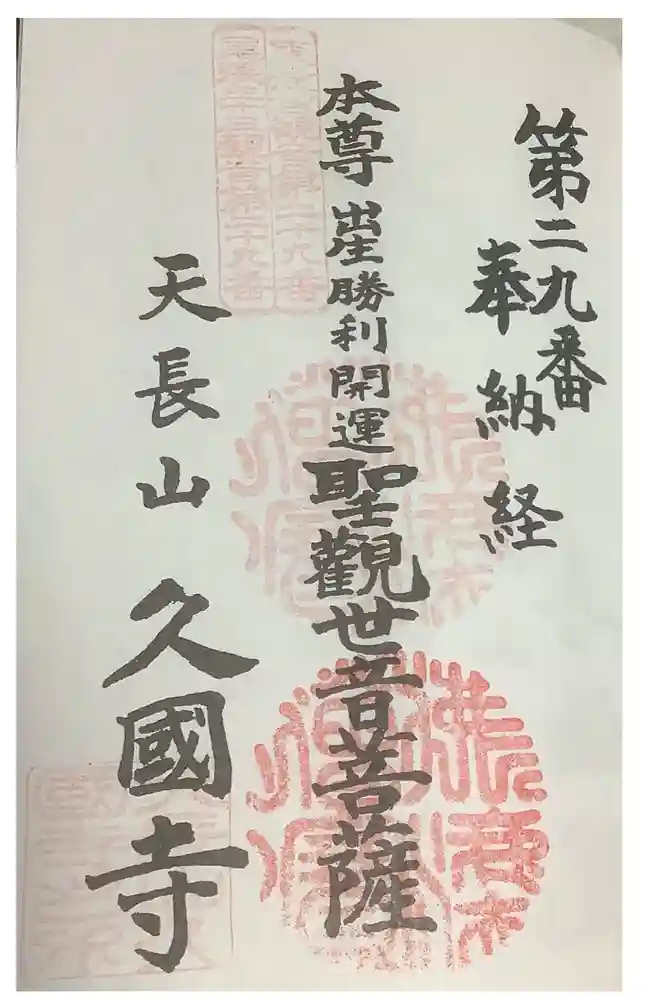 第二九番
奉納経
本尊出生勝利開運聖觀世音菩薩
天長山久國寺